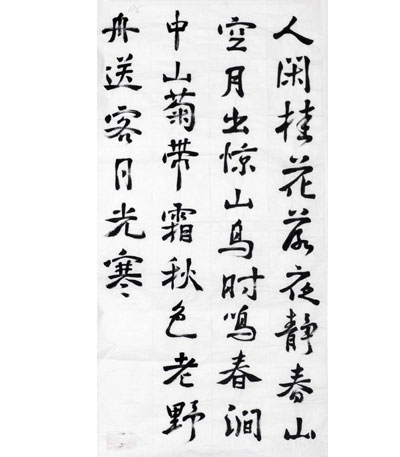 人闲桂花落夜静春山
空月出惊山鸟时鸣春涧
中山菊带霜秋色老野
舟送客月光寒